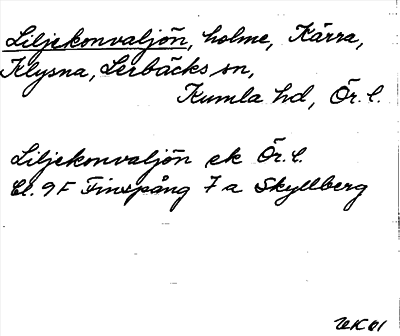 Liljekonvaljön, holme, Kärra,
Klysna, Lerbäcks sn,
Kumla hd, Ör. l.
Liljekonvaljön ek Ör. l.
Bl. 9F Finspång 7a Skyllberg